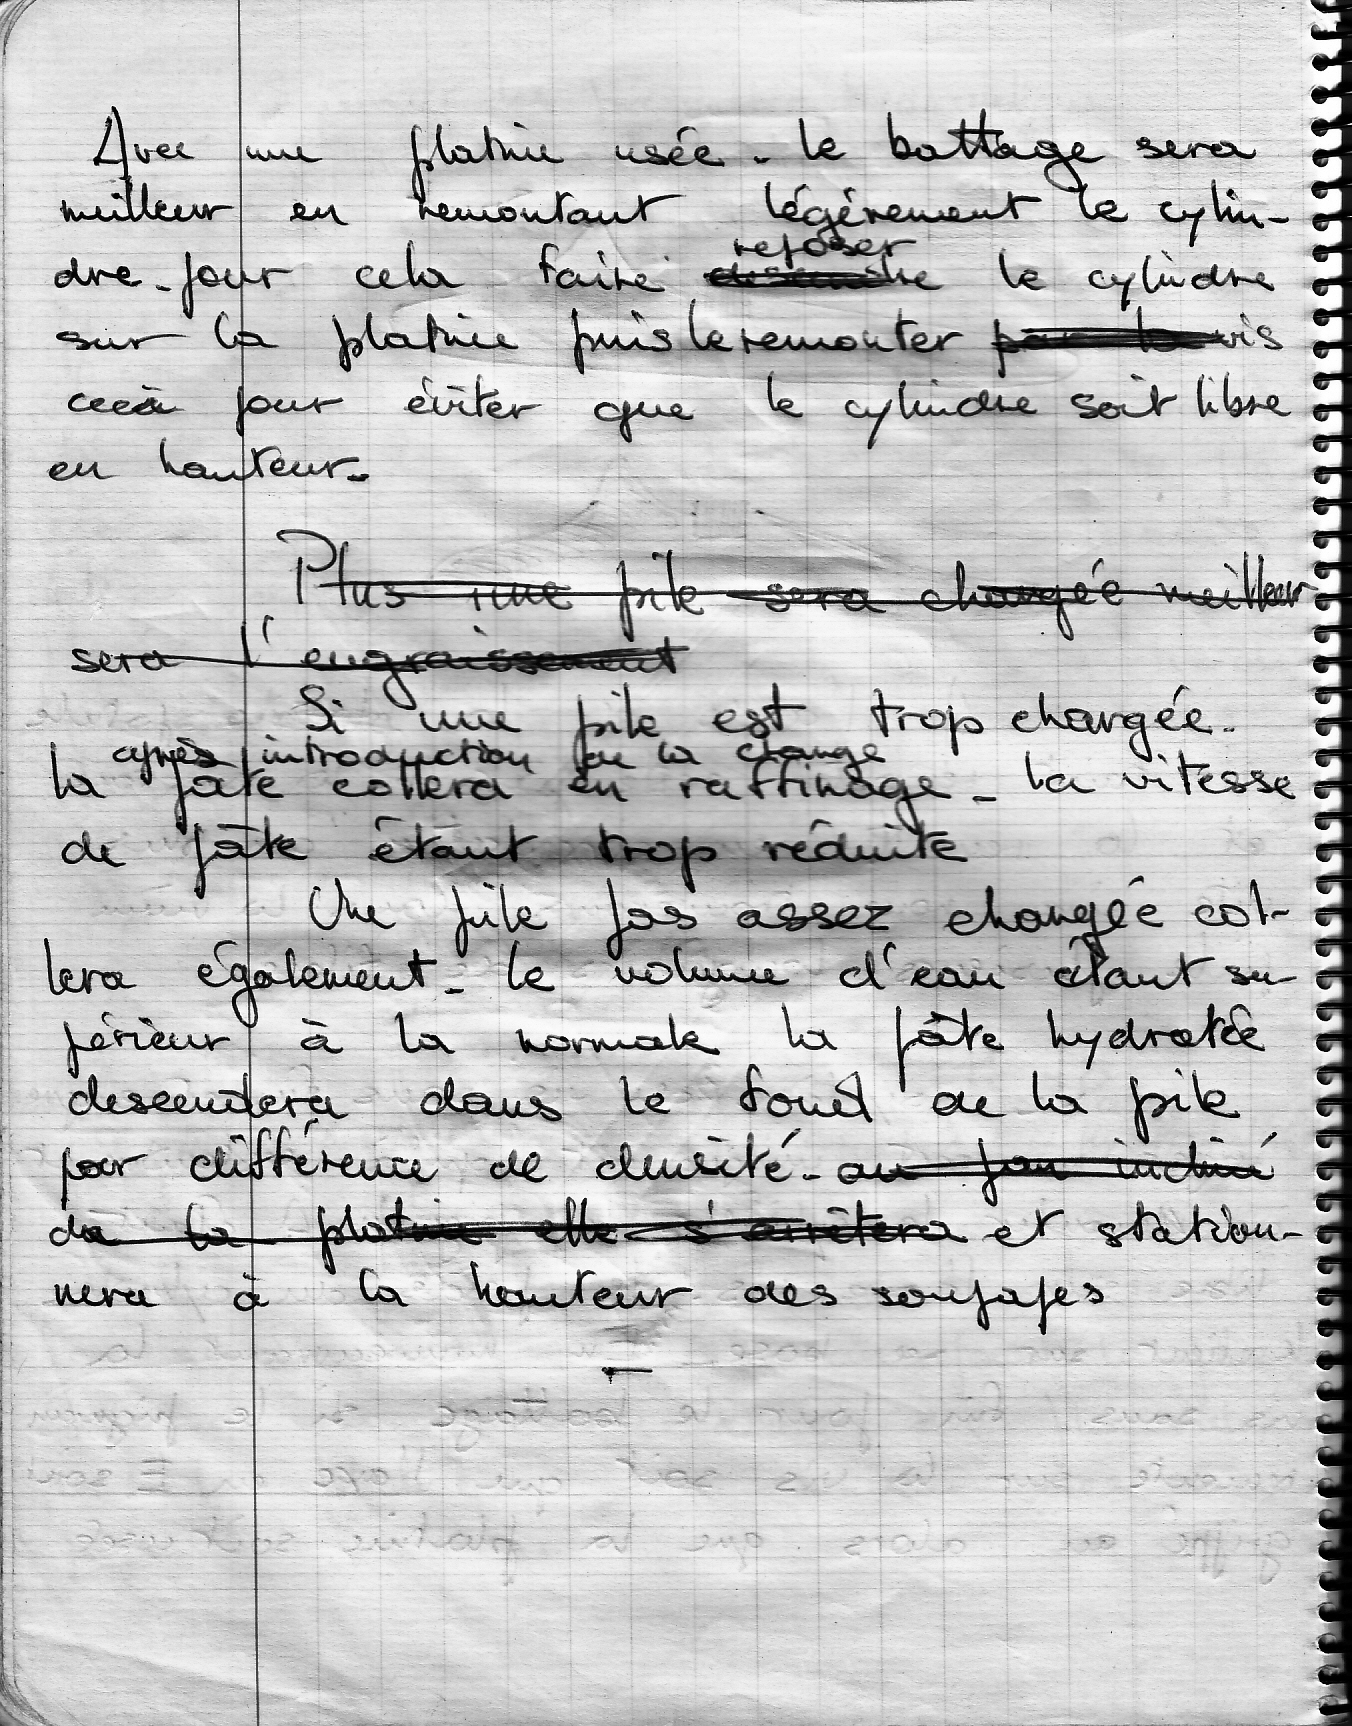 Avec une platine usée. le battage sera
meilleur en remontant légérement le cylin-
reposer
dre. pour cela faire descendre le cylindre
sur la platine puis le remonter par la vis
ceci pour éviter que le cylindre soit libre
en hauteur.
Plus une pile sera chargée meilleur
sera l'engraissement
Si une pile est trop chargée.
après introduction de la charge
la pâte collera en raffinage. la vitesse
de pâte étant trop réduite
Une pile pas assez chargée col-
lera également. le volume d'eau étant su-
périeur à la normale la pâte hydratée
descendera dans le fond de la pile
par différence de densité. au pan incliné
de la platine elle s'arrêtera et station-
nera à la hauteur des soupapes